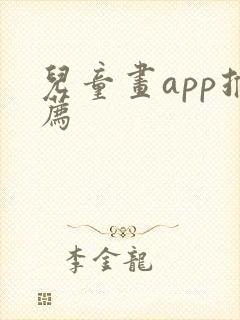 兒童畫app推
薦
李金龍